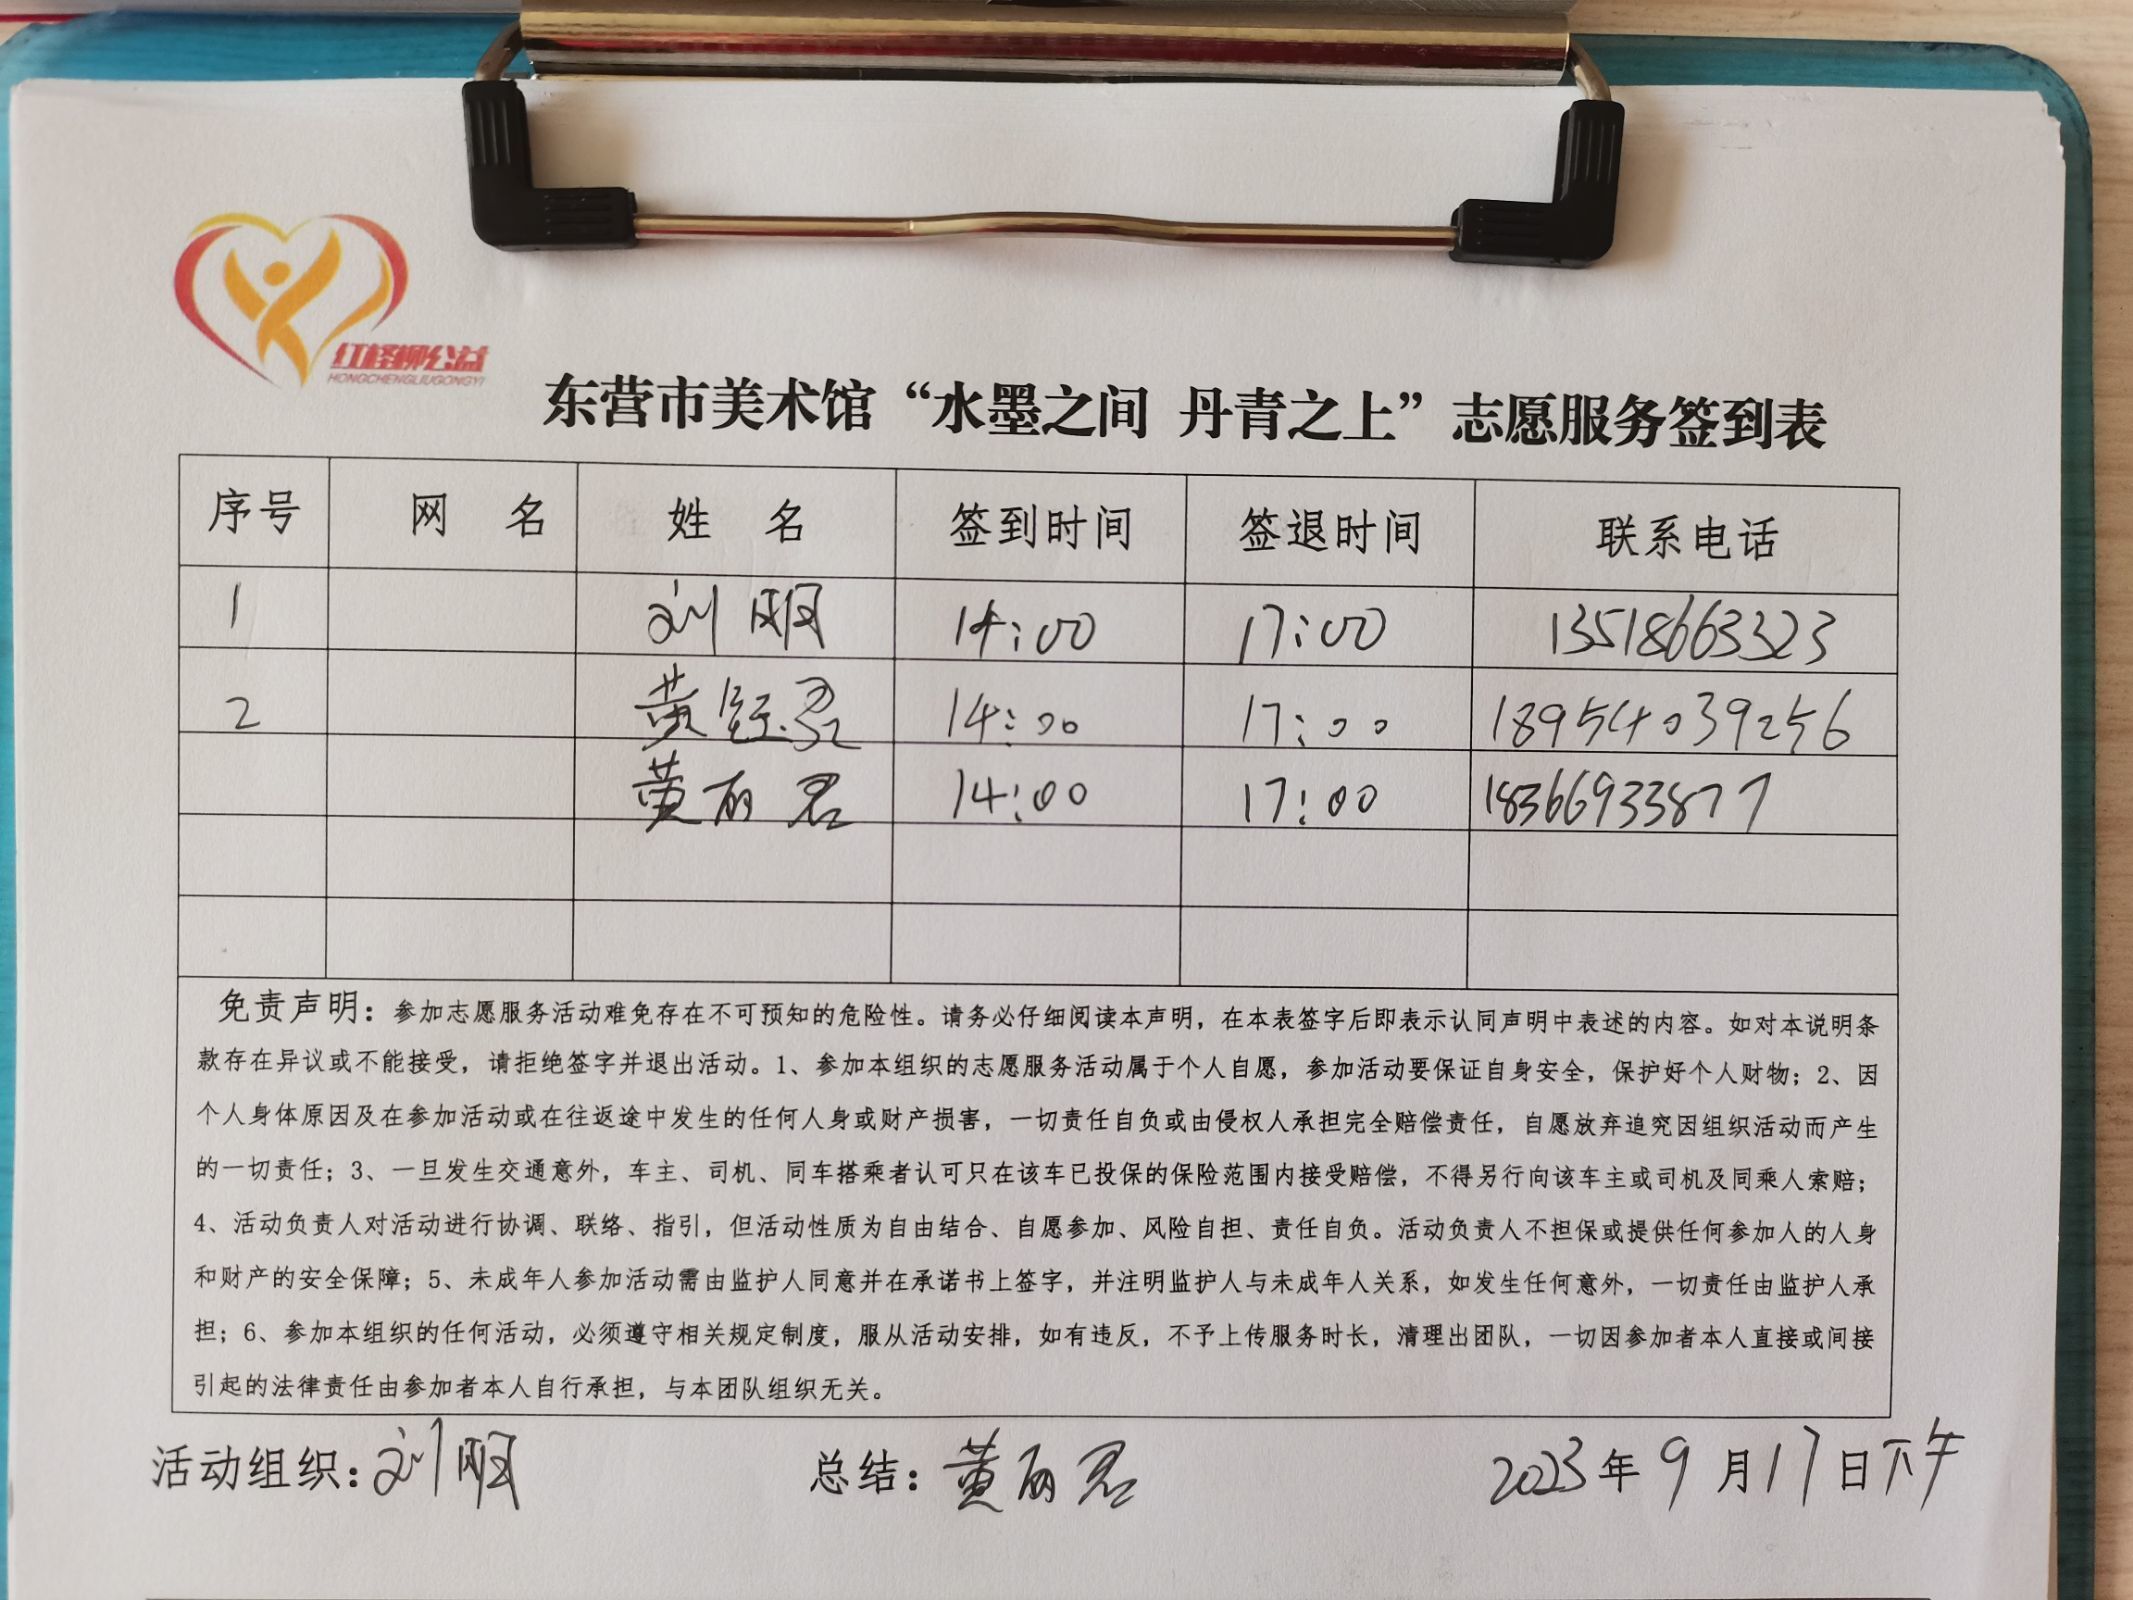 红柽柳公益
HONGCHENGLIUGONGYI
东营市美术馆“水墨之间 丹青之上”志愿服务签到表
序号 网 名 姓 名 签到时间 签退时间 联系电话
1 刘明 14:00 17:00 13518663323
2 黄钰君 14:00 17:00 18954039256
黄丽君 14:00 17:00 18366933877
免责声明：参加志愿服务活动难免存在不可预知的危险性。请务必仔细阅读本声明，在本表签字后即表示认同声明中表述的内容。如对本说明条
款存在异议或不能接受，请拒绝签字并退出活动。1、参加本组织的志愿服务活动属于个人自愿，参加活动要保证自身安全，保护好个人财物；2、因
个人身体原因及在参加活动或在往返途中发生的任何人身或财产损害，一切责任自负或由侵权人承担完全赔偿责任，自愿放弃追究因组织活动而产生
的一切责任；3、一旦发生交通意外，车主、司机、同车搭乘者认可只在该车已投保的保险范围内接受赔偿，不得另行向该车主或司机及同乘人索赔；
4、活动负责人对活动进行协调、联络、指引，但活动性质为自由结合、自愿参加、风险自担、责任自负。活动负责人不担保或提供任何参加人的人身
和财产的安全保障；5、未成年人参加活动需由监护人同意并在承诺书上签字，并注明监护人与未成年人关系，如发生任何意外，一切责任由监护人承
担；6、参加本组织的任何活动，必须遵守相关规定制度，服从活动安排，如有违反，不予上传服务时长，清理出团队，一切因参加者本人直接或间接
引起的法律责任由参加者本人自行承担，与本团队组织无关。
活动组织：刘明 总结：黄丽君 2023年9月17日下午